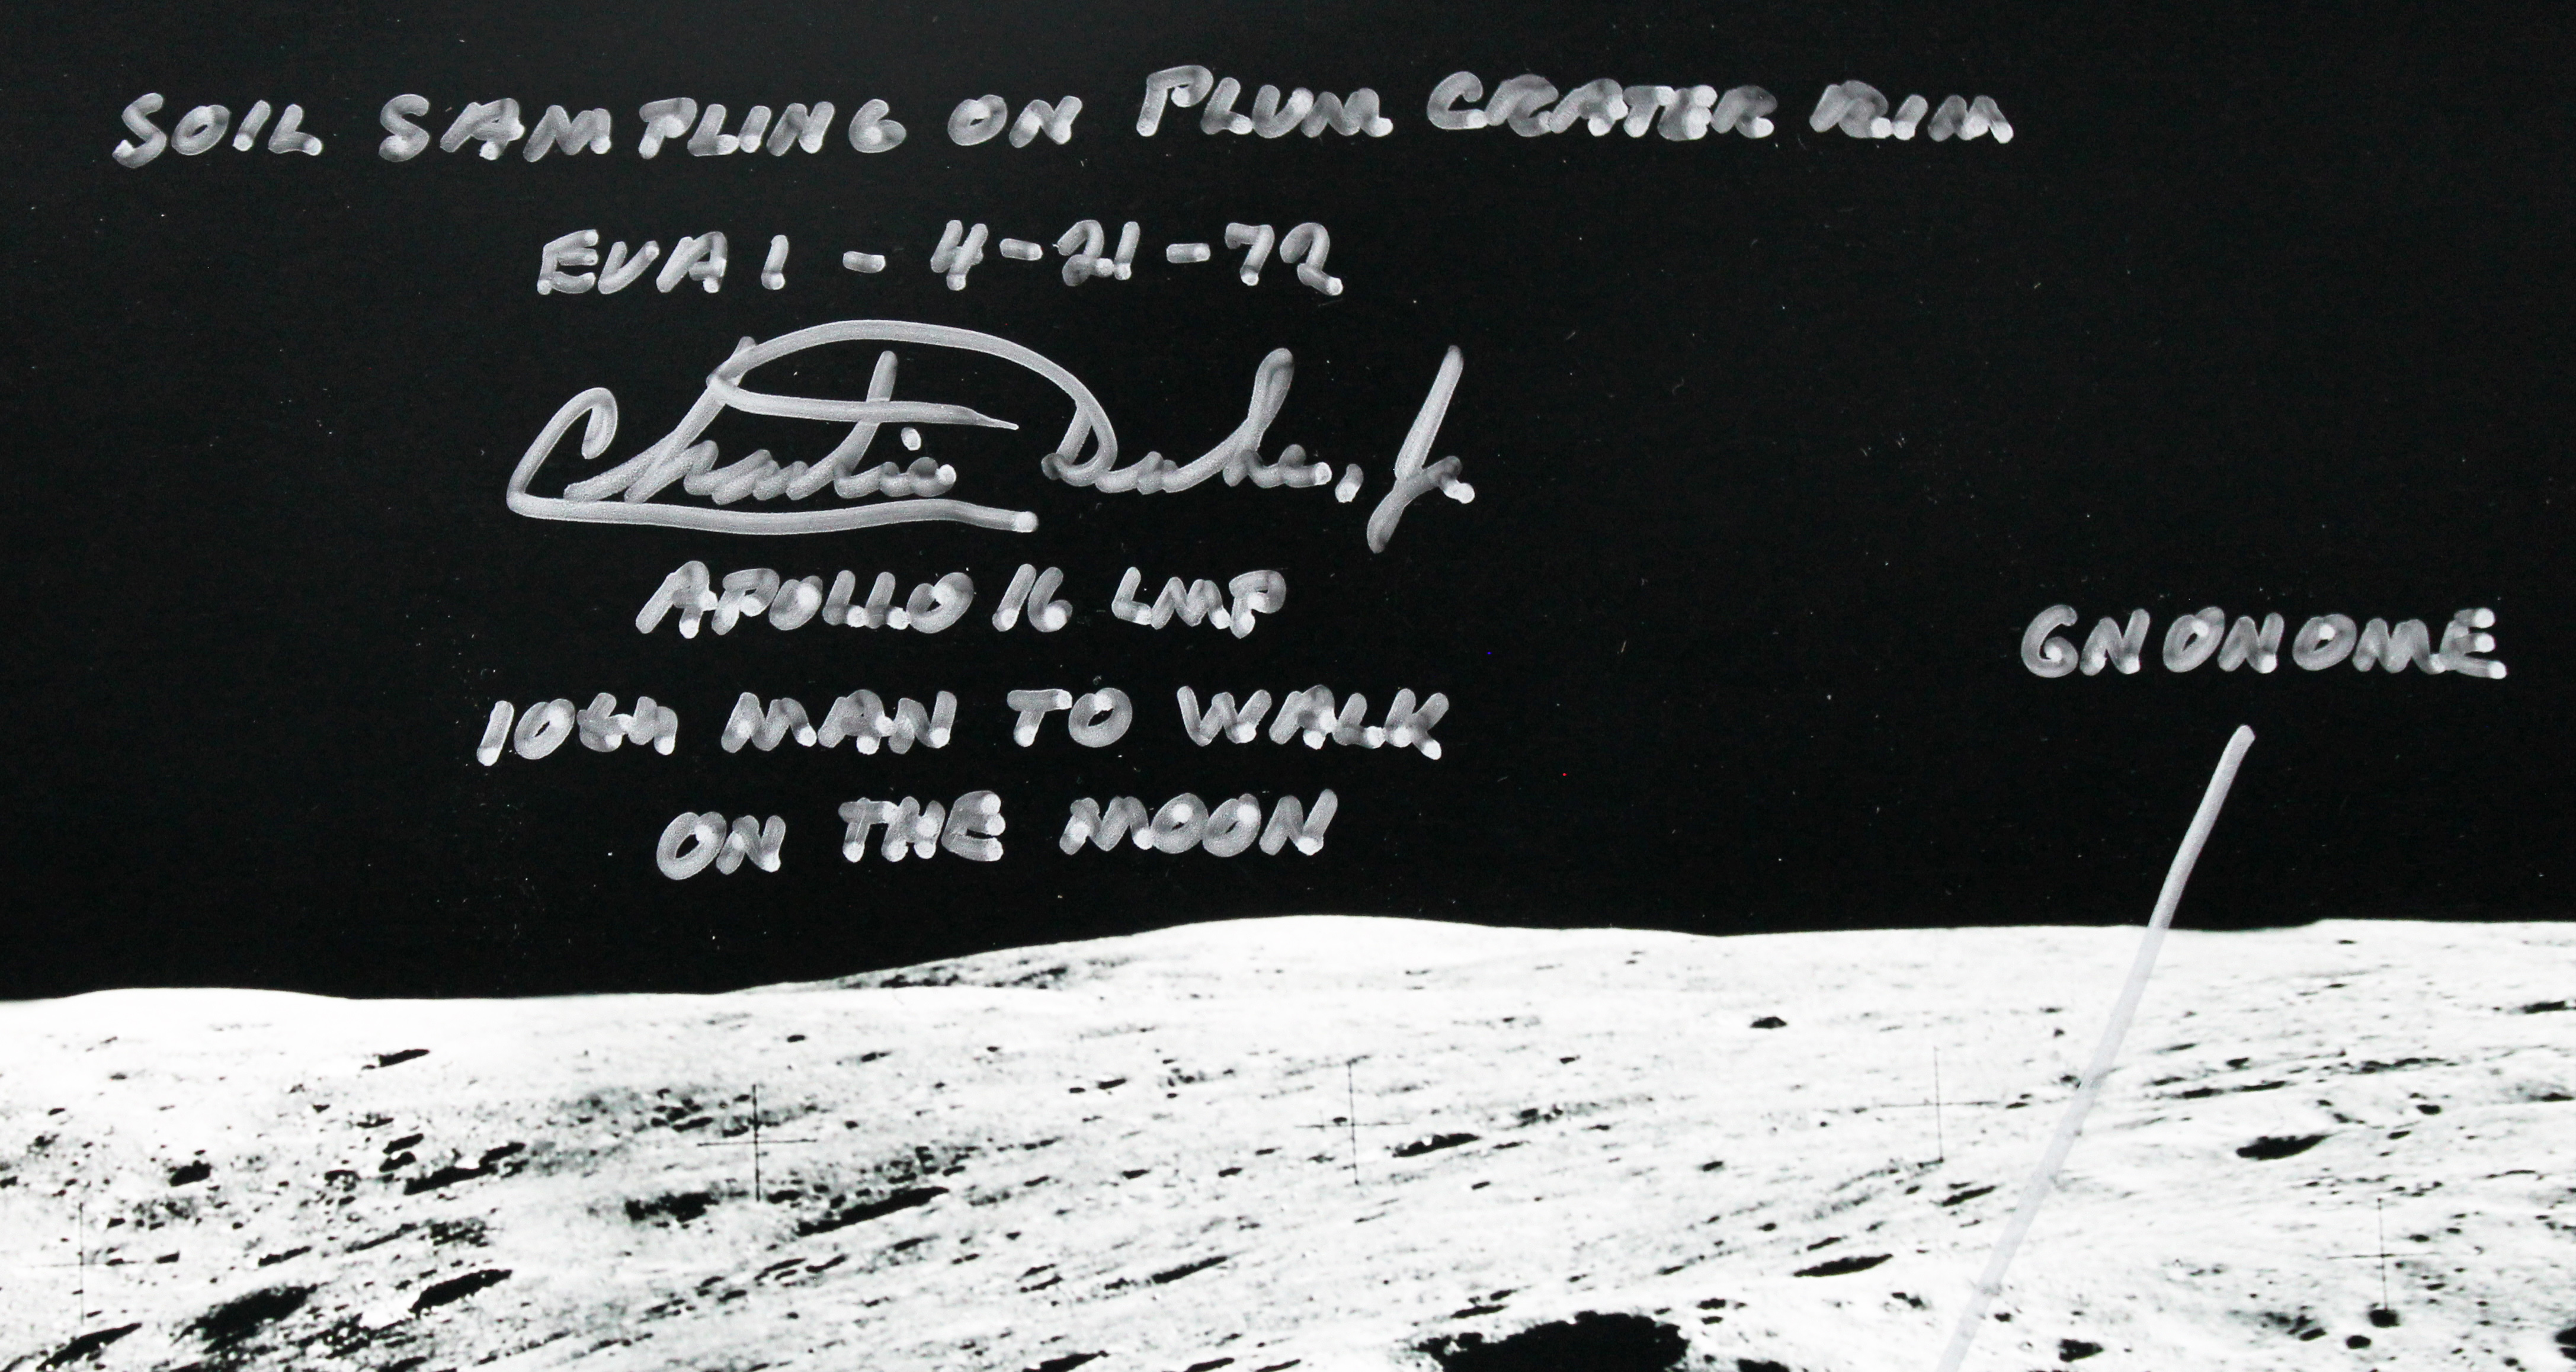 SOIL SAMPLING ON PLUM CRATER RIM
EVA 1 - 4-21-72
Charlie Duke, Jr.
APOLLO 16 LMP
10th MAN TO WALK
ON THE MOON
GNONOME